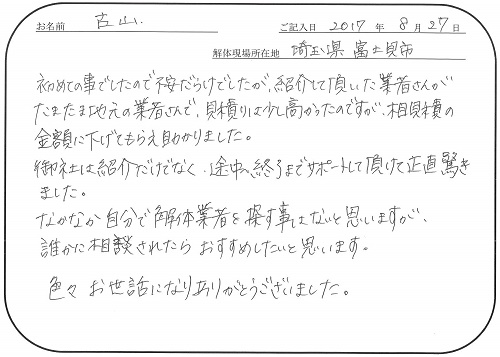 お名前 古山. ご記入日 2017 年 8 月 27 日
解体現場所在地 埼玉県 富士見市
初めての事でしたので不安だらけでしたが、紹介して頂いた業者さんが
たまたま地元の業者さんで、見積りは少し高かったのですが、相見積の
金額に下げてもらえ助かりました。
御社は紹介だけでなく、途中、終了までサポートして頂けて正直驚き
ました。
なかなか自分で解体業者を探す事はないと思いますが、
誰かに相談されたら おすすめしたいと思います。
色々 お世話になりありがとうございました。